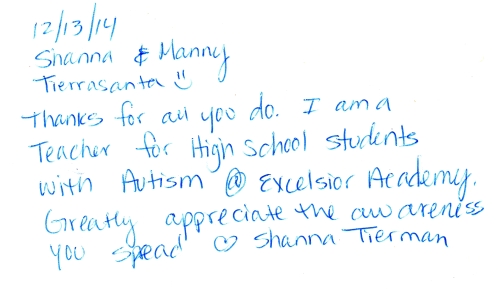 12/13/14
Shanna & Manny
Tierrasanta
Thanks for all you do. I am a
Teacher for High School students
with Autism @ Excelsior Academy.
Greatly appreciate the awareness
you spead ♡ Shanna Tierman